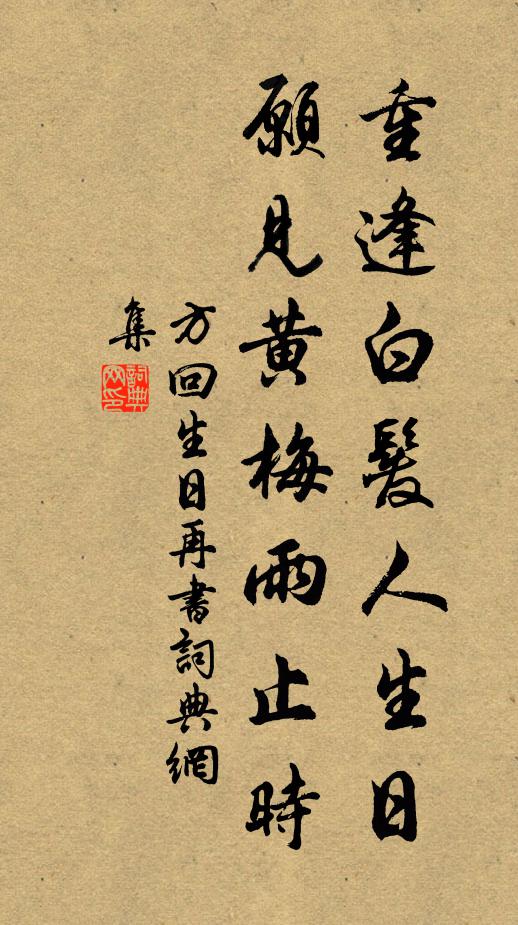 重逢白髮人生日
願見黃梅雨止時
方回生日再書詞典網
集
詞典網印